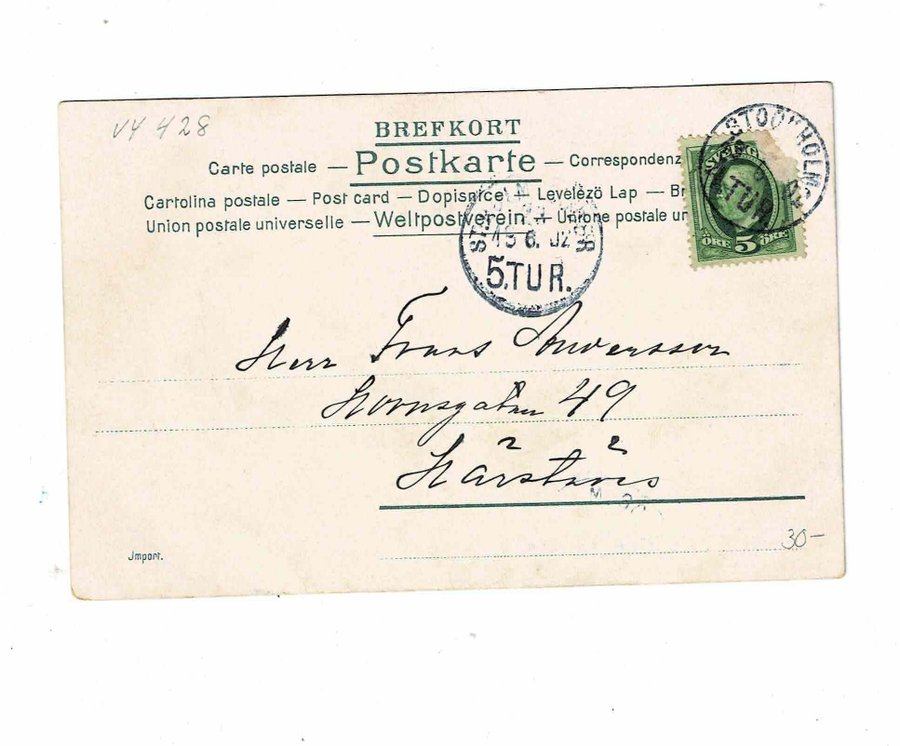 VY 428
BREFKORT
Carte postale — Postkarte — Correspondenz
Cartolina postale — Post card — Dopisnice — Levelezö Lap — Br
Union postale universelle — Weltpostverein — Unione postale un
STOCKHOLM
TUR
ÖRE 5 ÖRE
13 6. 02
5.TUR.
Herr Frans Andersson
Hornsgatan 49
Härstädes
Jmport.
30-